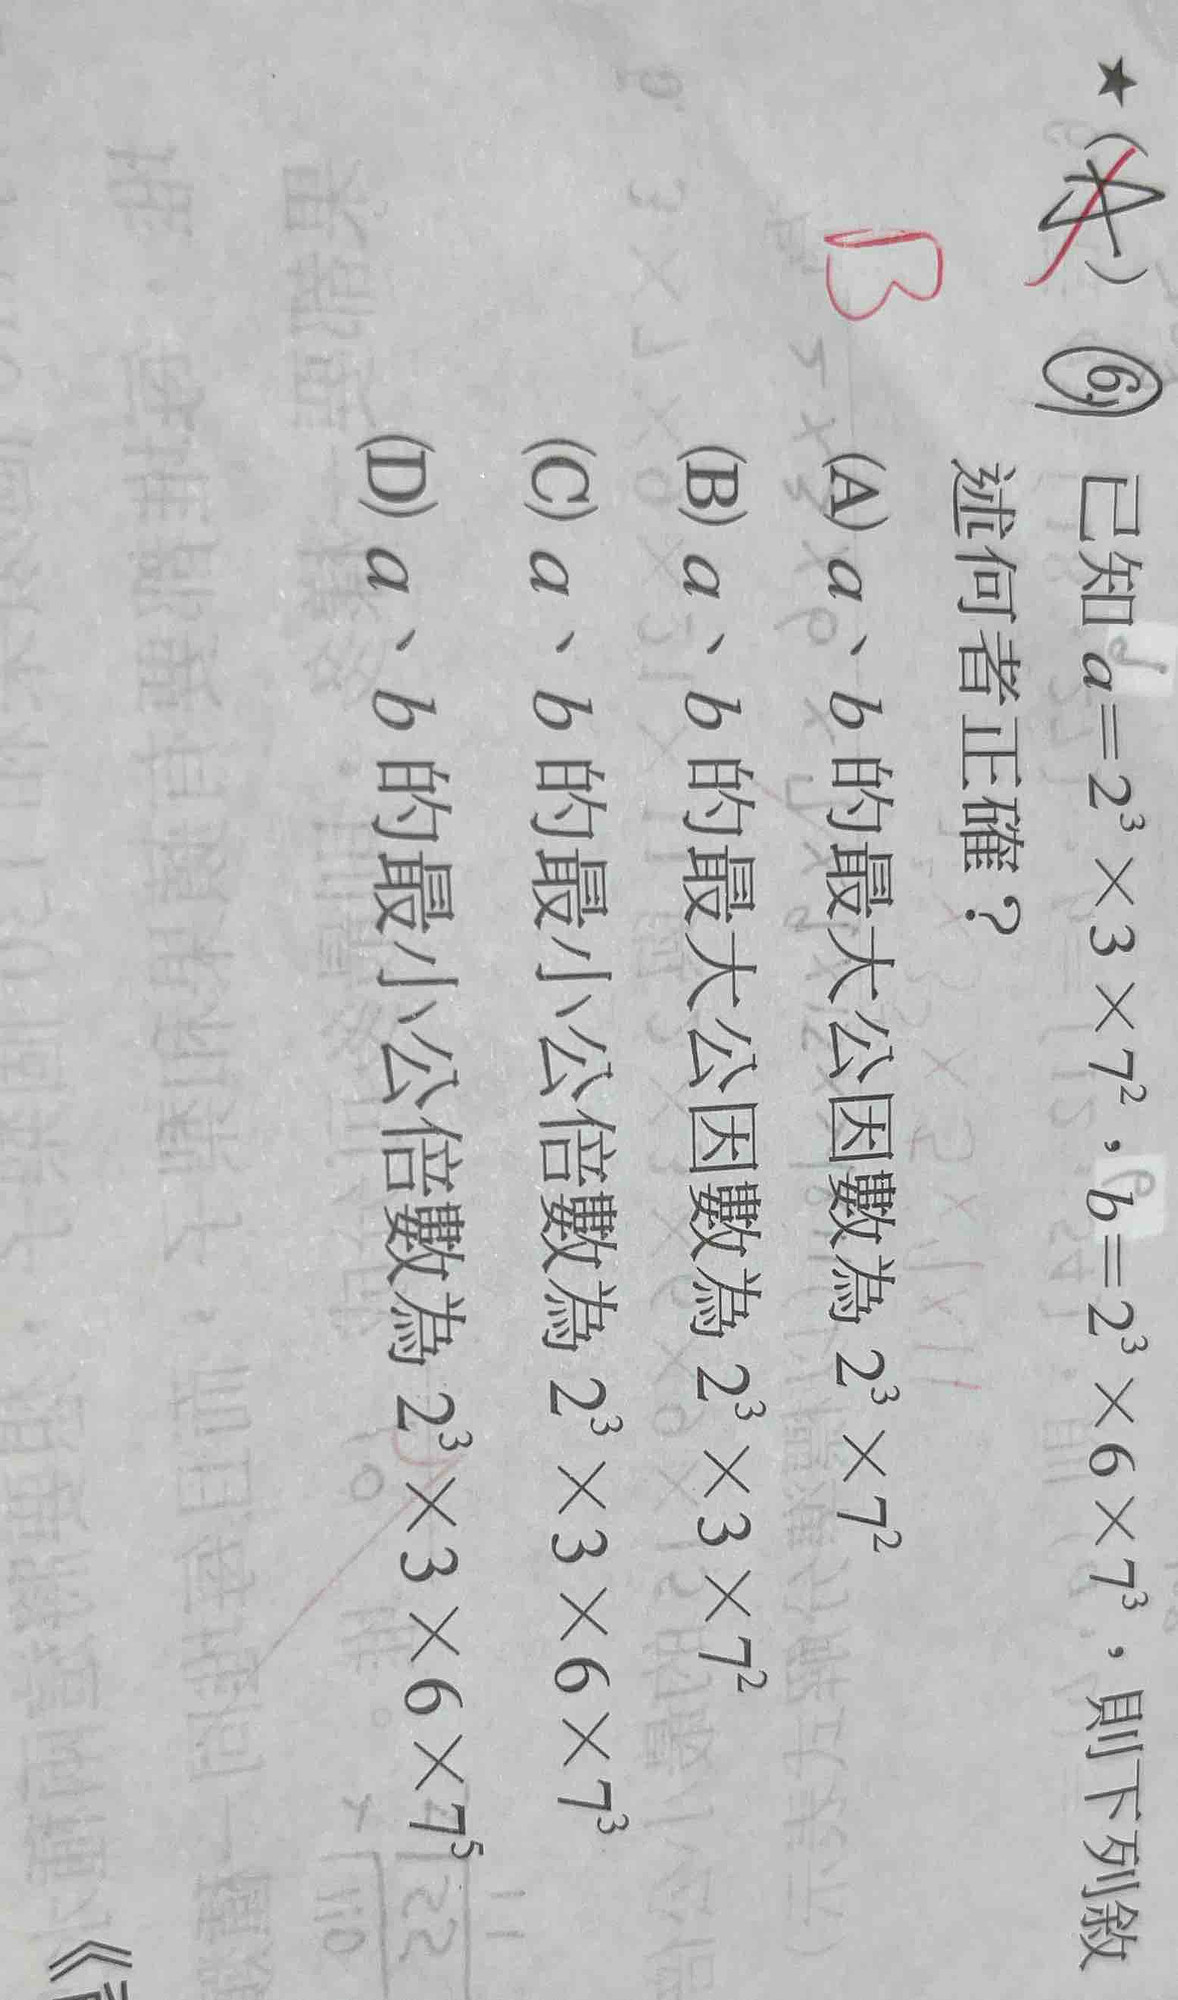 ★(A) 6. 已知 a=2³×3×7²,b=2³×6×7³,則下列敘
述何者正確?
B
(A) a、b 的最大公因數為 2³×7²
(B) a、b 的最大公因數為 2³×3×7²
(C) a、b 的最小公倍數為 2³×3×6×7³
(D) a、b 的最小公倍數為 2³×3×6×7⁵